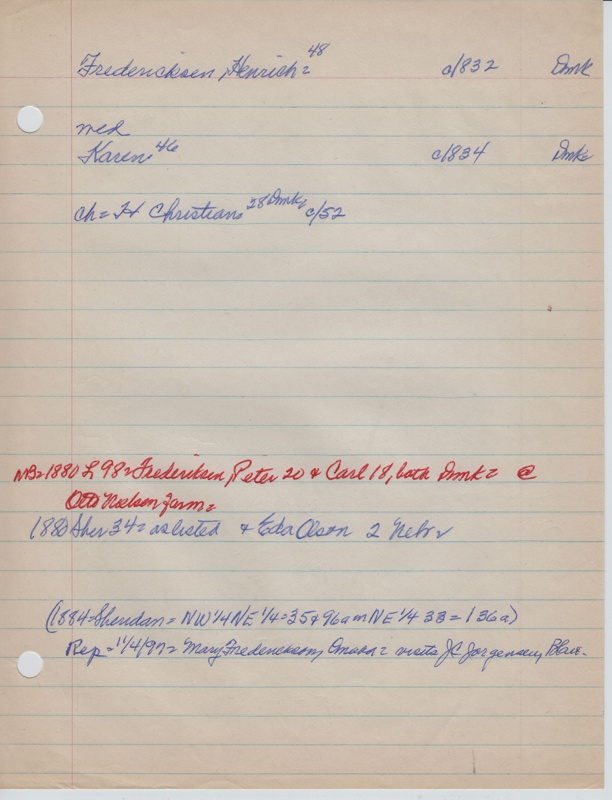 Fredericksen, Henrich= 48 c/832 Dmk
med
Karen= 46 c/834 Dmk=
ch= H Christian= 28 Dmk= c/52
NB= 1880 L 98= Frederiksen, Peter 20 & Carl 18, both Dmk= @
Otto Nielson farm=
1880 Sher 34= as listed & Eda Olson 2 Nebr=
(1884= Sheridan= NW 1/4 NE 1/4= 35 & 96a in NE 1/4 33= 136a)
Rep= 11/4/97= Mary Frederickson, Omaha= visits JC Jorgensen, Blair.